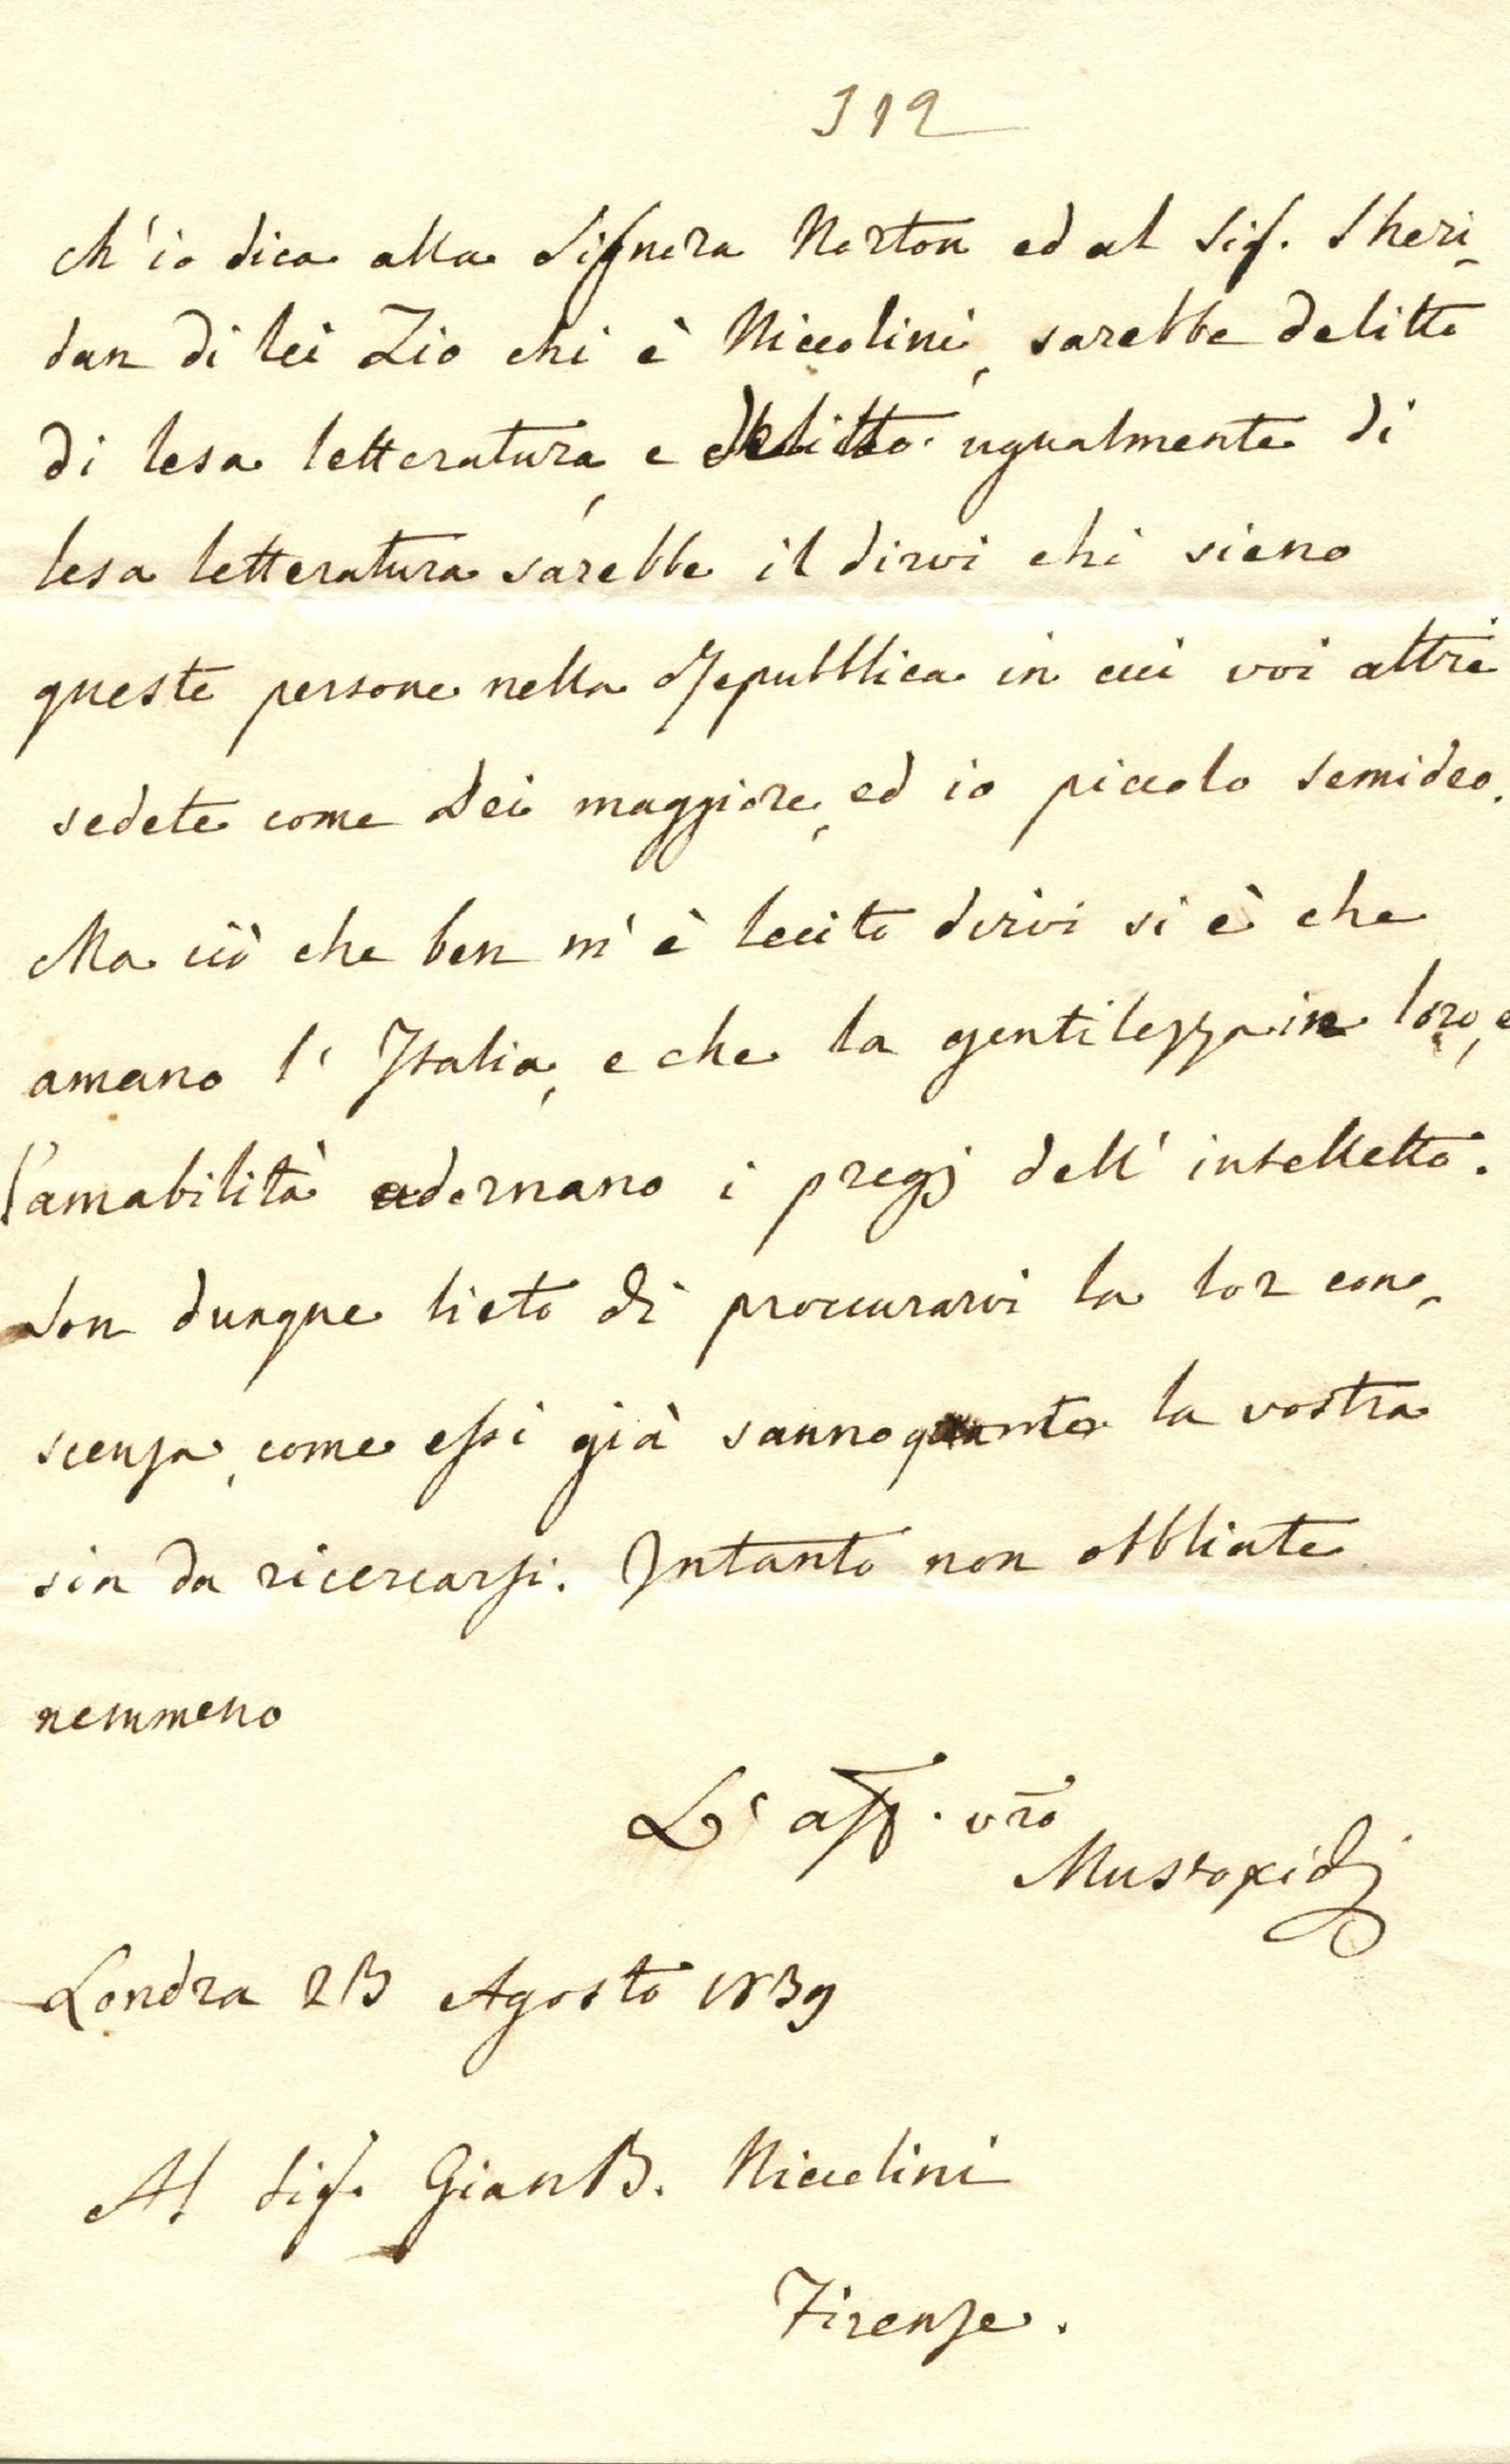 312
Ch'io dica alla Signora Norton ed al Sig. Sheri-
dan di lei Zio chi è Niccolini, sarebbe delitto
di lesa letteratura, e delitto ugualmente di
lesa letteratura sarebbe il dirvi chi sieno
queste persone nella Repubblica in cui voi altri
sedete come Dei maggiore, ed io piccolo semideo.
Ma ciò che ben m'è lecito dirvi si è che
amano l'Italia, e che la gentilezza in loro, e
l'amabilità adornano i pregj dell'intelletto.
Son dunque lieto di proccurarvi la lor cono-
scenza, come essi già sanno quanto la vostra
sia da ricercarsi. Intanto non obbliate
nemmeno
L' aff. vro
Mustoxidj
Londra 23 Agosto 1839
Al Sig. Gian B. Niccolini
Firenze.